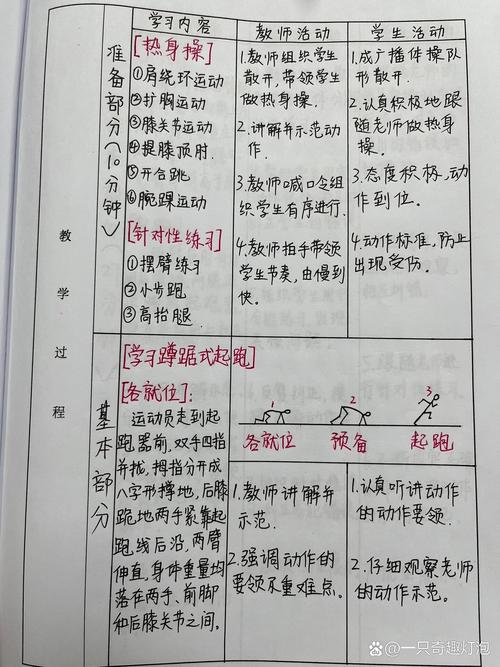 学习内容
教师活动
学生活动
教学过程
准备部分(10分钟)
[热身操]
①肩绕环运动
②扩胸运动
③膝关节运动
④提膝顶肘.
⑤开合跳
⑥腕踝运动
[针对性练习]
①摆臂练习
②小步跑
③高抬腿
1.教师组织学生
散开,带领学生
做热身操.
2.讲解并示范动
作.
3.教师喊口令组
织学生有序进行.
4.教师拍手带领
学生节奏,由慢到
快.
1.成广播体操队
形散开.
2.认真积极地跟
随老师做热身
操.
3.态度积极,动
作到位.
4.动作标准,防止
出现受伤.
基本部分
[学习蹲踞式起跑]
[各就位]:
运动员走到起
跑器前,双手四指
并拢,拇指分开成
八字形撑地,后膝
跪地两手紧靠起
跑线后沿,两臂
伸直,身体重量均
落在两手、前脚
和后膝关节之间.
1 2 3
各就位 预备 起跑
1.教师讲解并
示范.
2.强调动作的
要领及重难点.
1.认真听讲动作
的动作要领.
2.仔细观察老师
的动作示范.
一只奇趣灯泡